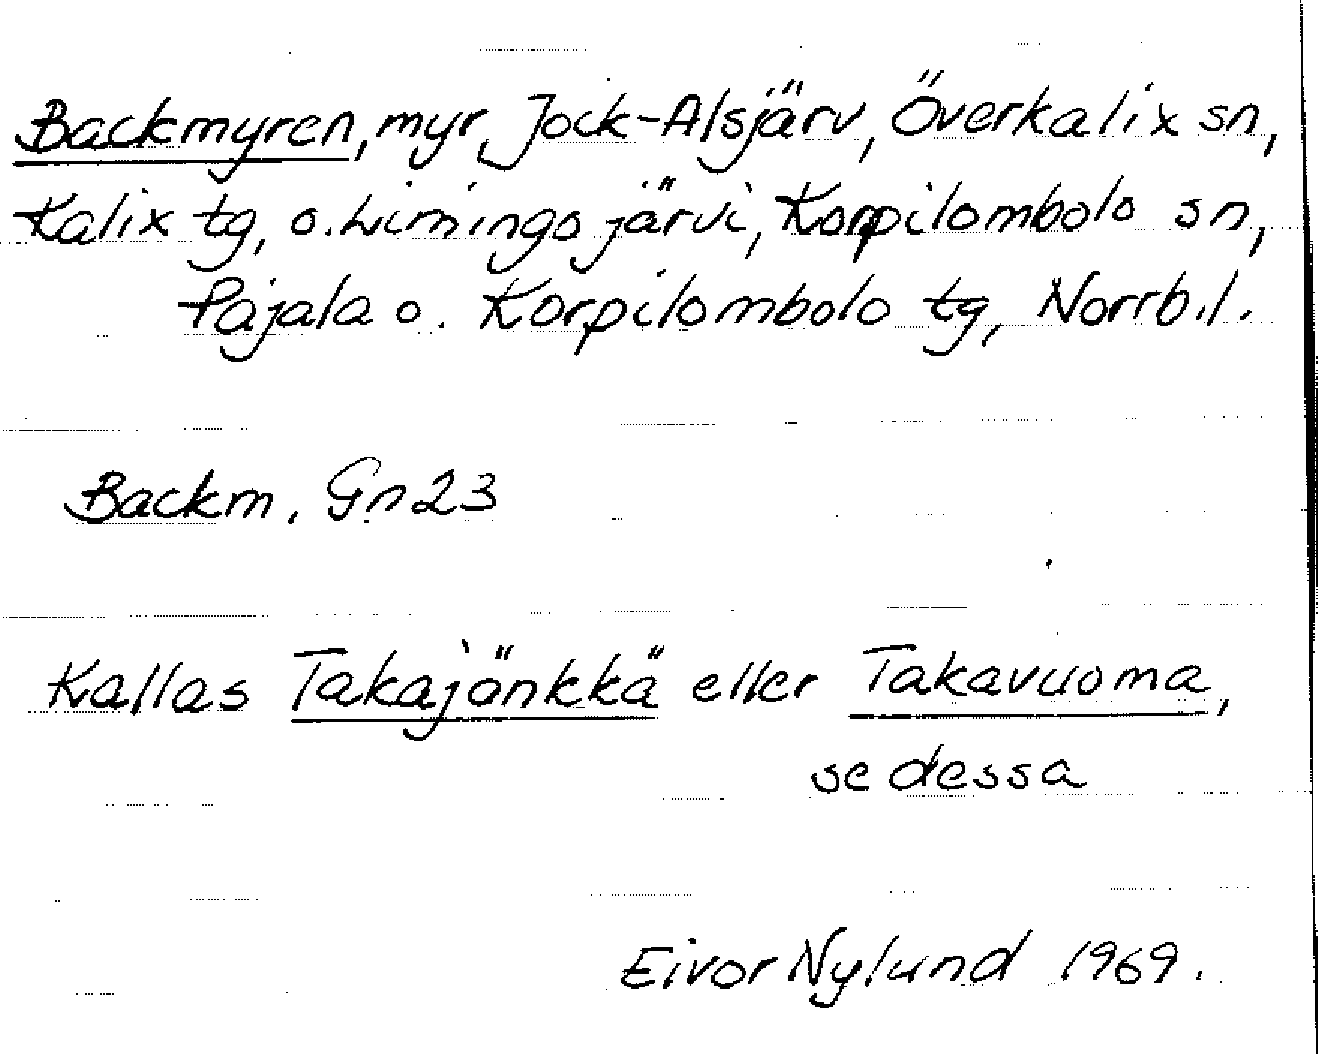 Backmyren, myr, Jock-Alsjärv, Överkalix sn,
Kalix tg, o. Limingojärvi, Korpilombolo sn,
Pajala o. Korpilombolo tg, Norrb.l.
Backm. Gn23
Kallas Takajänkkä eller Takavuoma,
se dessa
Eivor Nylund 1969.